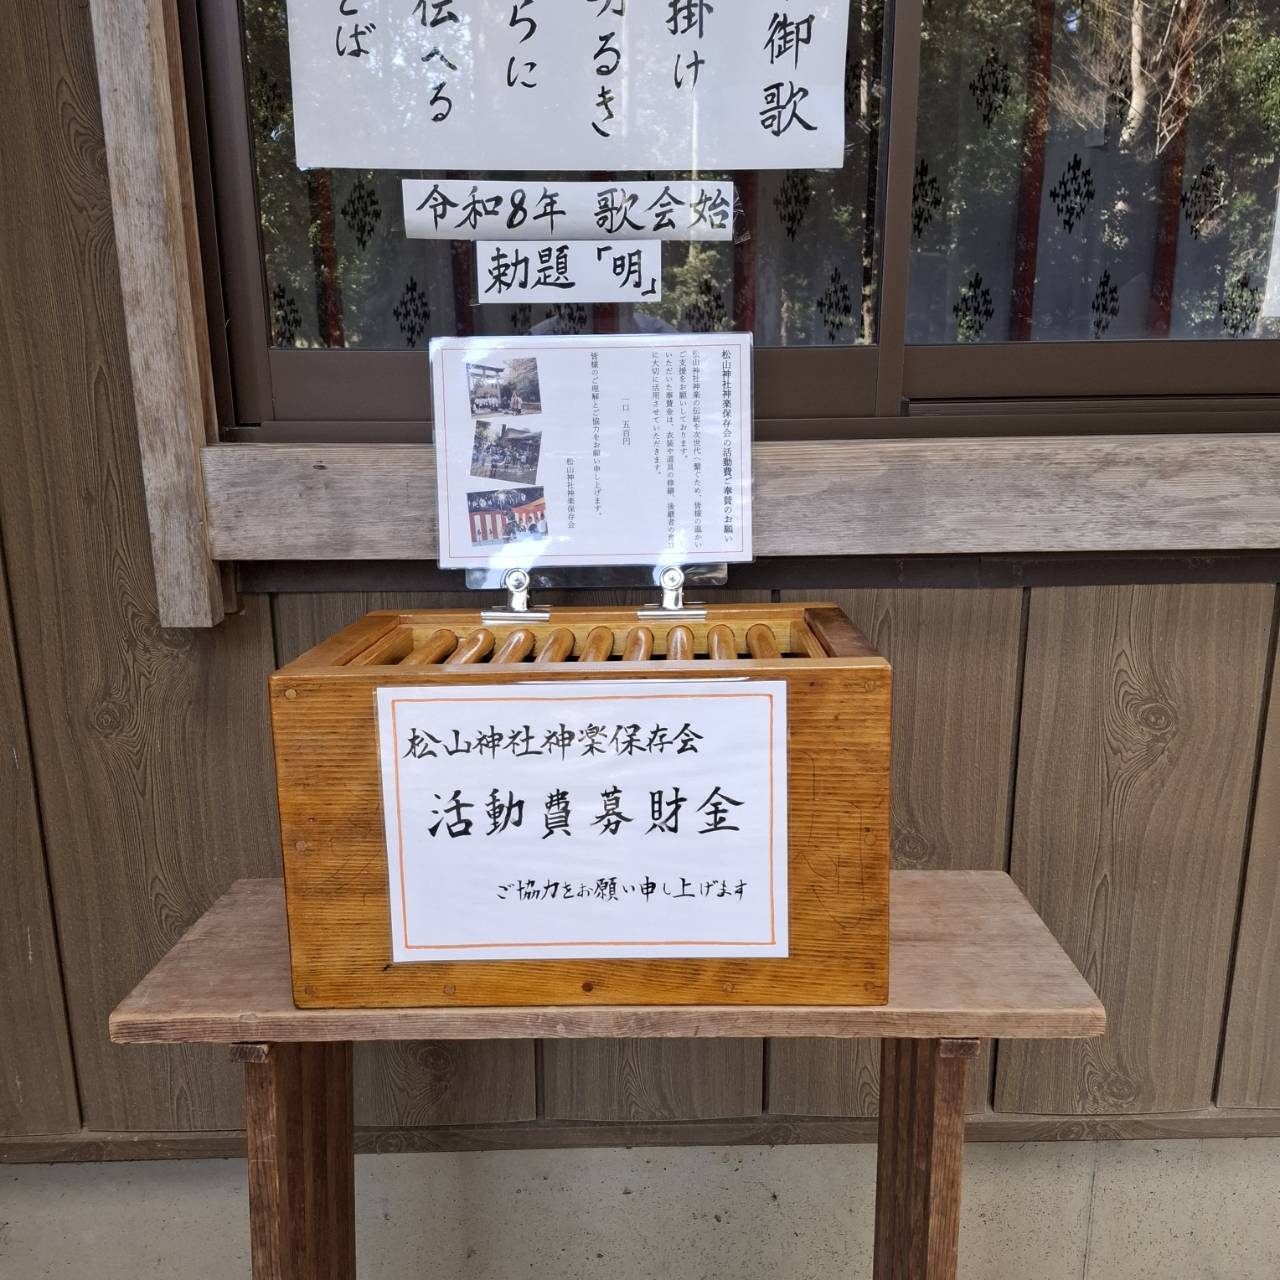 御歌
掛け
るき
らに
伝へる
とば
令和8年 歌会始
勅題「明」
松山神社神楽保存会の活動費ご奉賛のお願い
松山神社神楽の伝統を次世代へ繋ぐため、皆様の温かい
ご支援をお願いしております。
いただいた奉賛金は、衣装や道具の修繕、後継者の育成
に大切に活用させていただきます。
一口 五百円
皆様のご理解とご協力をお願い申し上げます。
松山神社神楽保存会
松山神社神楽保存会
活動費募財金
ご協力をお願い申し上げます